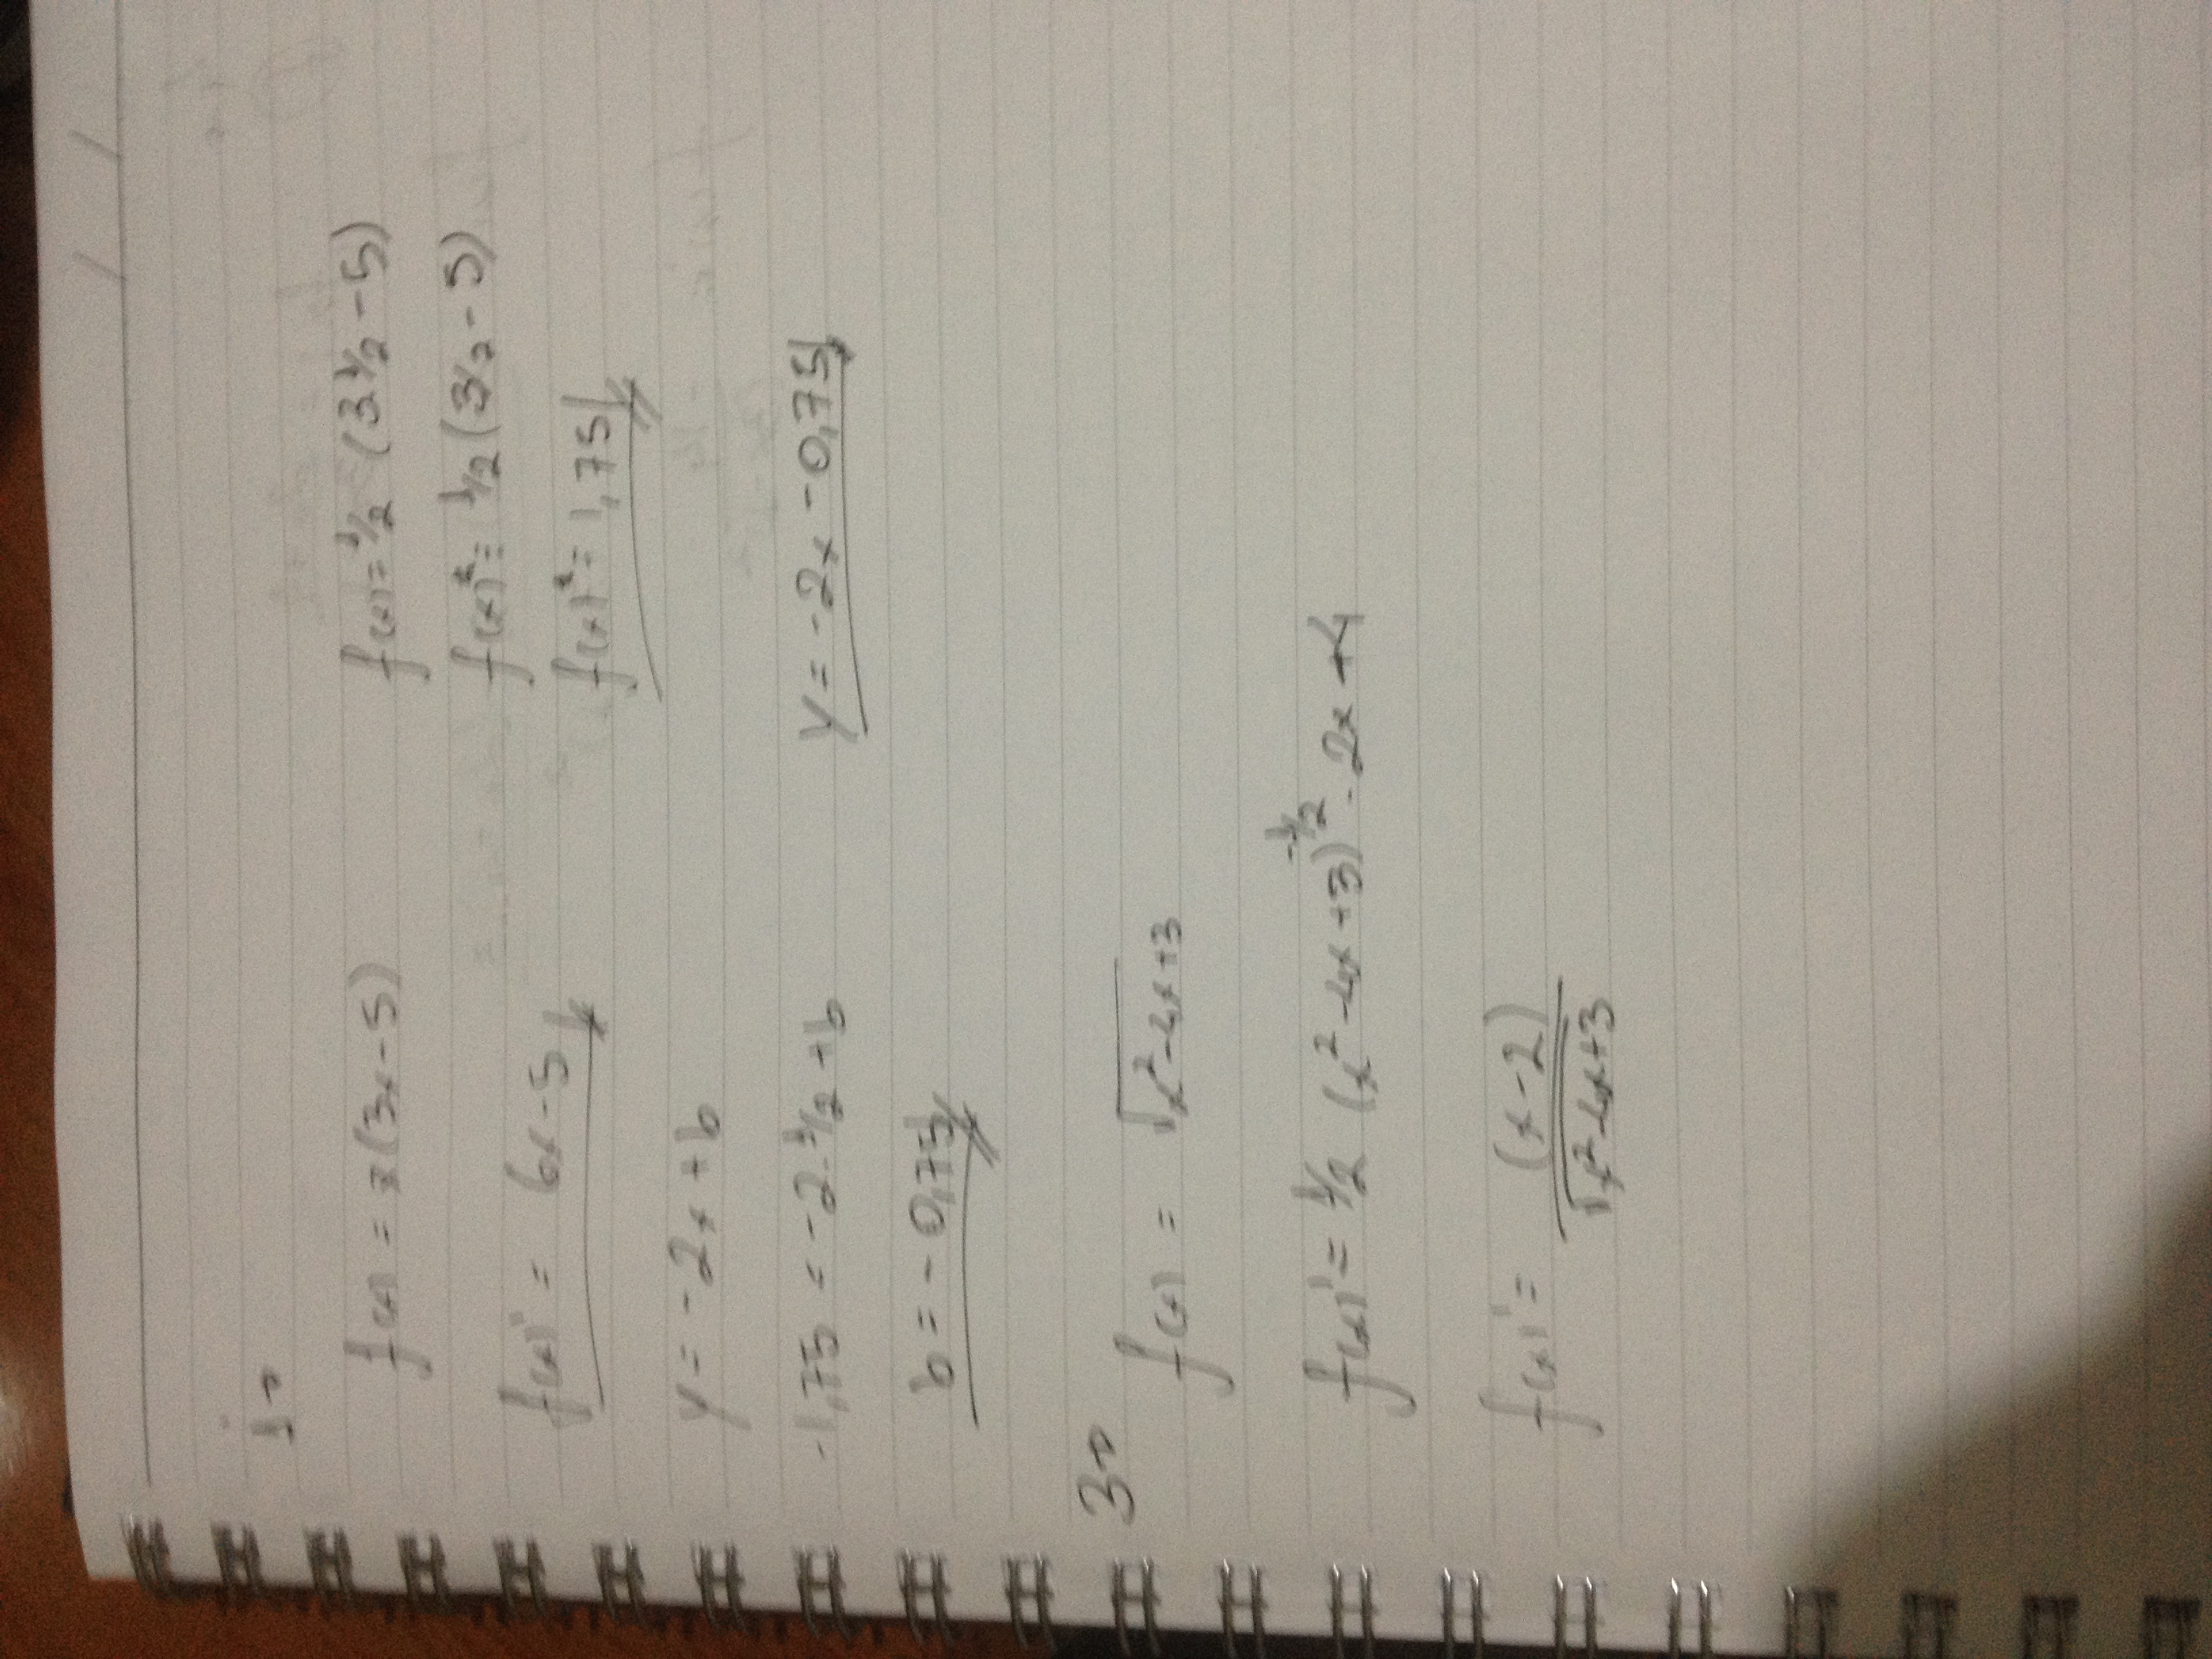 1→
f(x) = x(3x-5)
f(x)' = 6x-5
y = -2x + b
-1,75 = -2.1/2 + b
b = -0,75
f(x) = 1/2 (3.1/2 - 5)
f(x) = 1/2 (3/2 - 5)
f(x) = 1,75
y = -2x - 0,75
3→
f(x) = √x²-4x+3
f(x)' = 1/2 (x²-4x+3)^-1/2 . 2x+4
f(x)' = (x-2)
√x²-4x+3